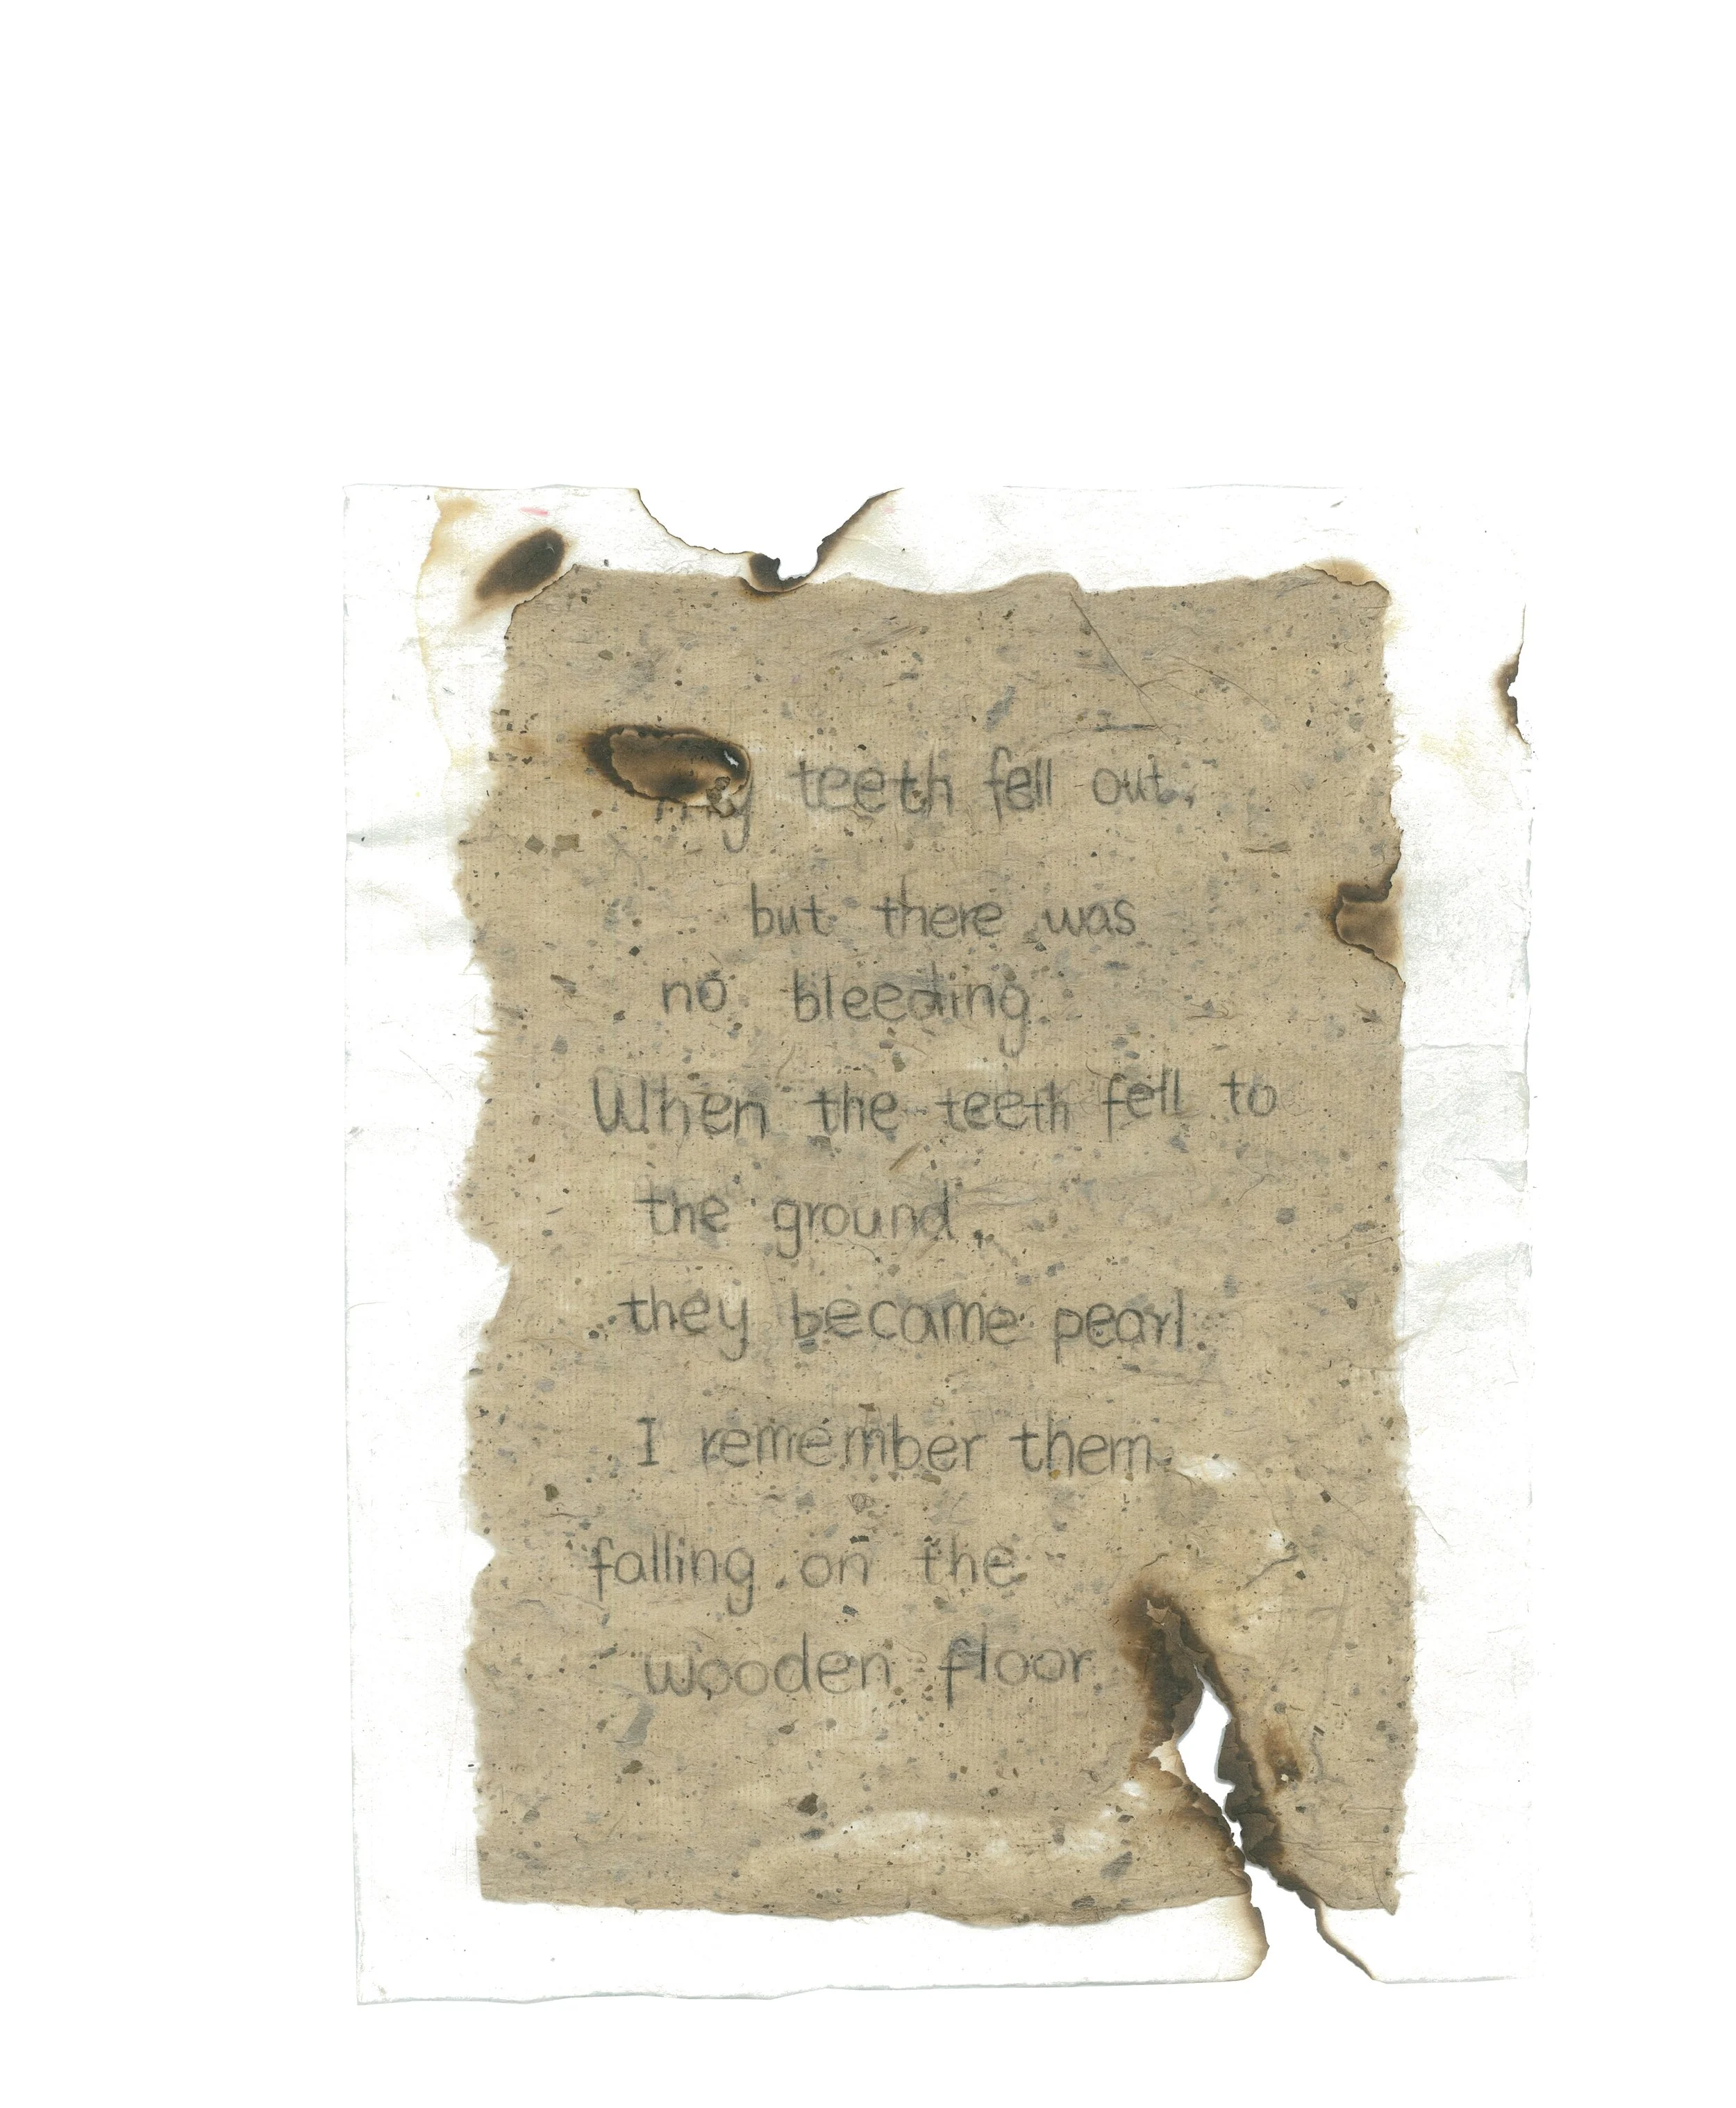 My teeth fell out,
but there was
no bleeding
When the teeth fell to
the ground,
they became pearl
I remember them
falling on the
wooden floor.